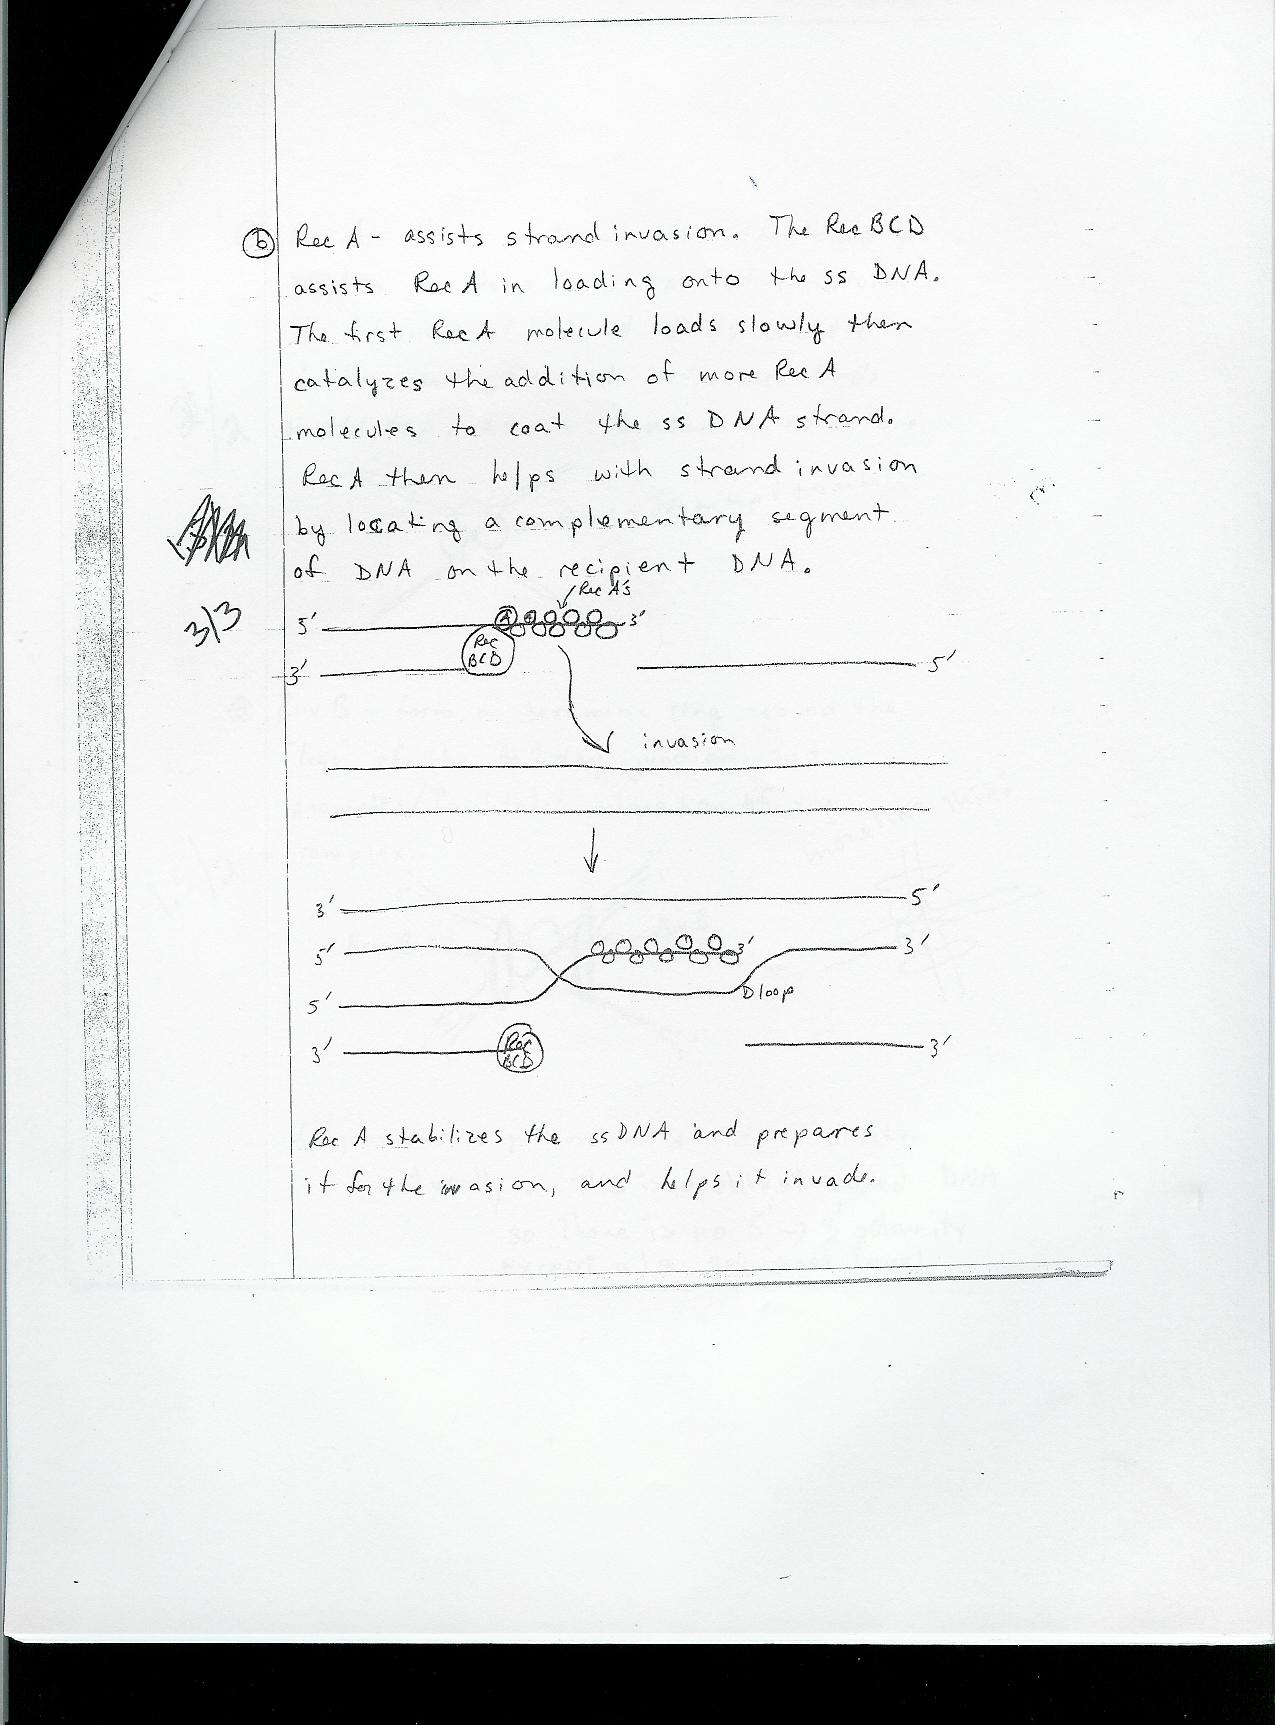 b Rec A - assists strand invasion. The Rec BCD
assists Rec A in loading onto the ss DNA.
The first Rec A molecule loads slowly then
catalyzes the addition of more Rec A
molecules to coat the ss DNA strand.
Rec A then helps with strand invasion
by locating a complementary segment
of DNA on the recipient DNA.
Rec A's
3/3
5' A 3'
Rec
BCD
3' 5'
invasion
3' 5'
5' 3' 3'
5' D loop
3' Rec BCD 3'
Rec A stabilizes the ssDNA and prepares
it for the invasion, and helps it invade.